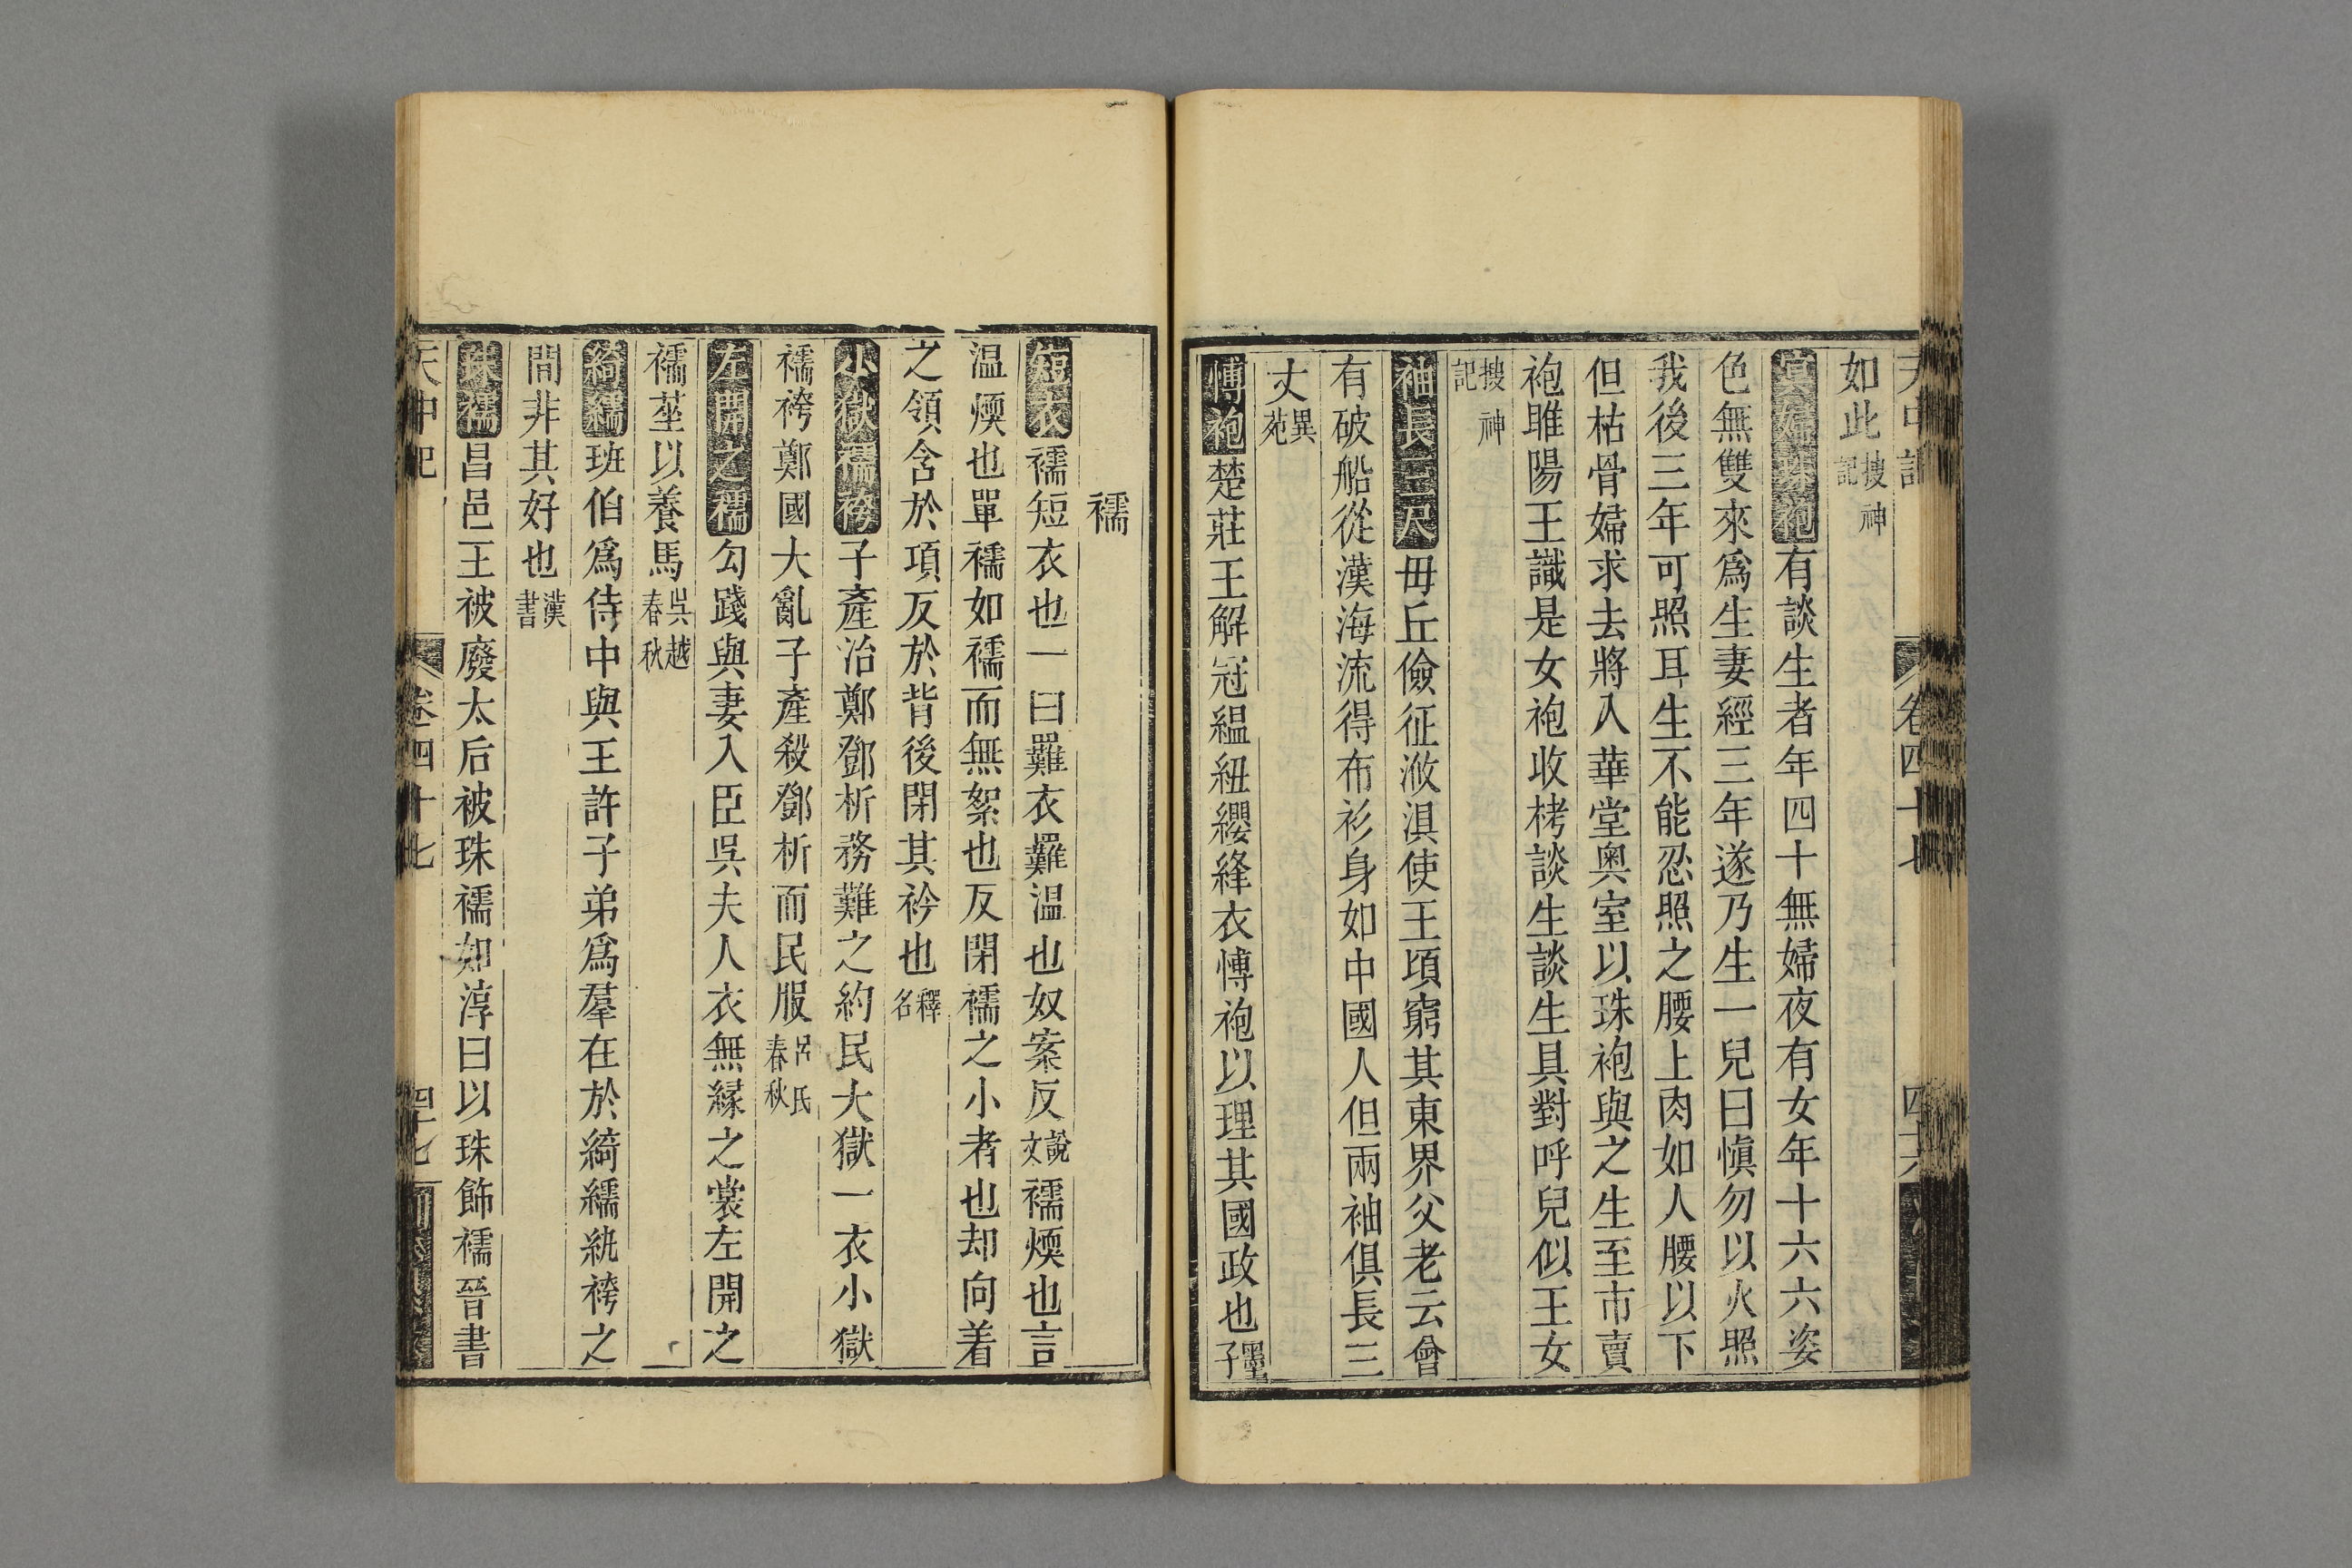 天中記 卷四十七 四十六
如此搜神記
冥婦珠袍有談生者年四十無婦夜有女年十六六姿
色無雙來爲生妻經三年遂乃生一兒曰愼勿以火照
我後三年可照耳生不能忍照之腰上肉如人腰以下
但枯骨婦求去將入華堂奥室以珠袍與之生至市賣
袍睢陽王識是女袍收栲談生談生具對呼兒似王女
搜神記
袖長三尺毋丘儉征滧淇使王頎窮其東界父老云曾
有破船從漢海流得布衫身如中國人但兩袖俱長三
丈異苑
慱袍楚莊王解冠緼紐纓絳衣慱袍以理其國政也墨子
襦
短衣襦短衣也一曰難衣難温也奴案反說文襦煗也言
温煗也單襦如襦而無絮也反閉襦之小者也却向着
之領含於項反於背後閉其衿也釋名
小獄襦袴子產治鄭鄧析務難之約民大獄一衣小獄
襦袴鄭國大亂子產殺鄧析而民服呂氏春秋
左開之襦勾踐與妻入臣吳夫人衣無縁之裳左開之
襦莝以養馬吳越春秋
綺繻班伯爲侍中與王許子弟爲羣在於綺繻紈袴之
間非其好也漢書
珠襦昌邑王被廢太后被珠襦如淳曰以珠飾襦晉書
天中記 卷四十七 四十七